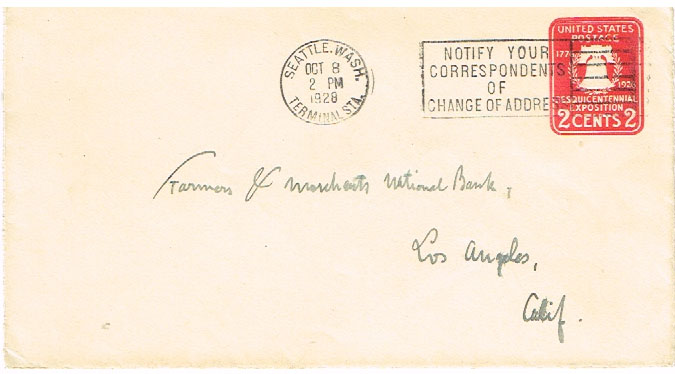 SEATTLE, WASH.
OCT 8
2 PM
1928
TERMINAL STA.
NOTIFY YOUR
CORRESPONDENTS
OF
CHANGE OF ADDRESS
UNITED STATES
POSTAGE
1776
1926
SESQUICENTENNIAL
EXPOSITION
2 CENTS 2
Farmers & Merchants National Bank,
Los Angeles,
Calif.